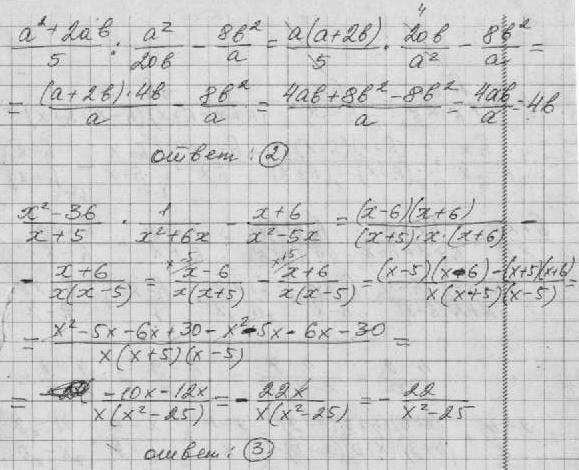 (a² + 2ab)/5 : a²/20b − 8b²/a = a(a+2b)/5 · 20b/a² − 8b²/a =
= (a+2b)·4b/a − 8b²/a = (4ab + 8b² − 8b²)/a = 4ab/a = 4b
ответ: ②
(x² − 36)/(x + 5) · 1/(x² + 6x) − (x + 6)/(x² − 5x) = (x−6)(x+6)/((x+5)·x·(x+6)) −
− (x + 6)/(x(x−5)) = (x − 6)/(x(x+5)) − (x + 6)/(x(x−5)) = ((x−5)(x−6) − (x+5)(x+6))/(x(x+5)(x−5)) =
= (x² − 5x − 6x + 30 − x² − 5x − 6x − 30)/(x(x+5)(x−5)) =
= (−10x − 12x)/(x(x² − 25)) = − 22x/(x(x² − 25)) = − 22/(x² − 25)
ответ: ③